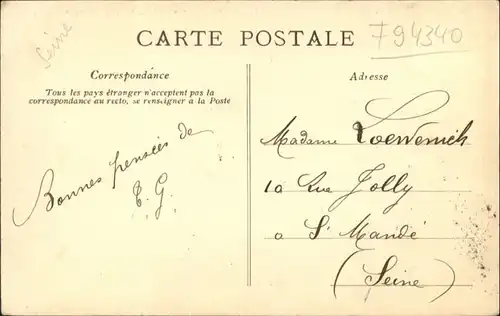 Seine
F94340
CARTE POSTALE
Correspondance
Tous les pays étranger n'acceptent pas la
correspondance au recto, se renseigner a la Poste
Bonnes pensées de
E. G.
Adresse
Madame Loewenich
10 Rue Jolly
a St Mandé
(Seine)